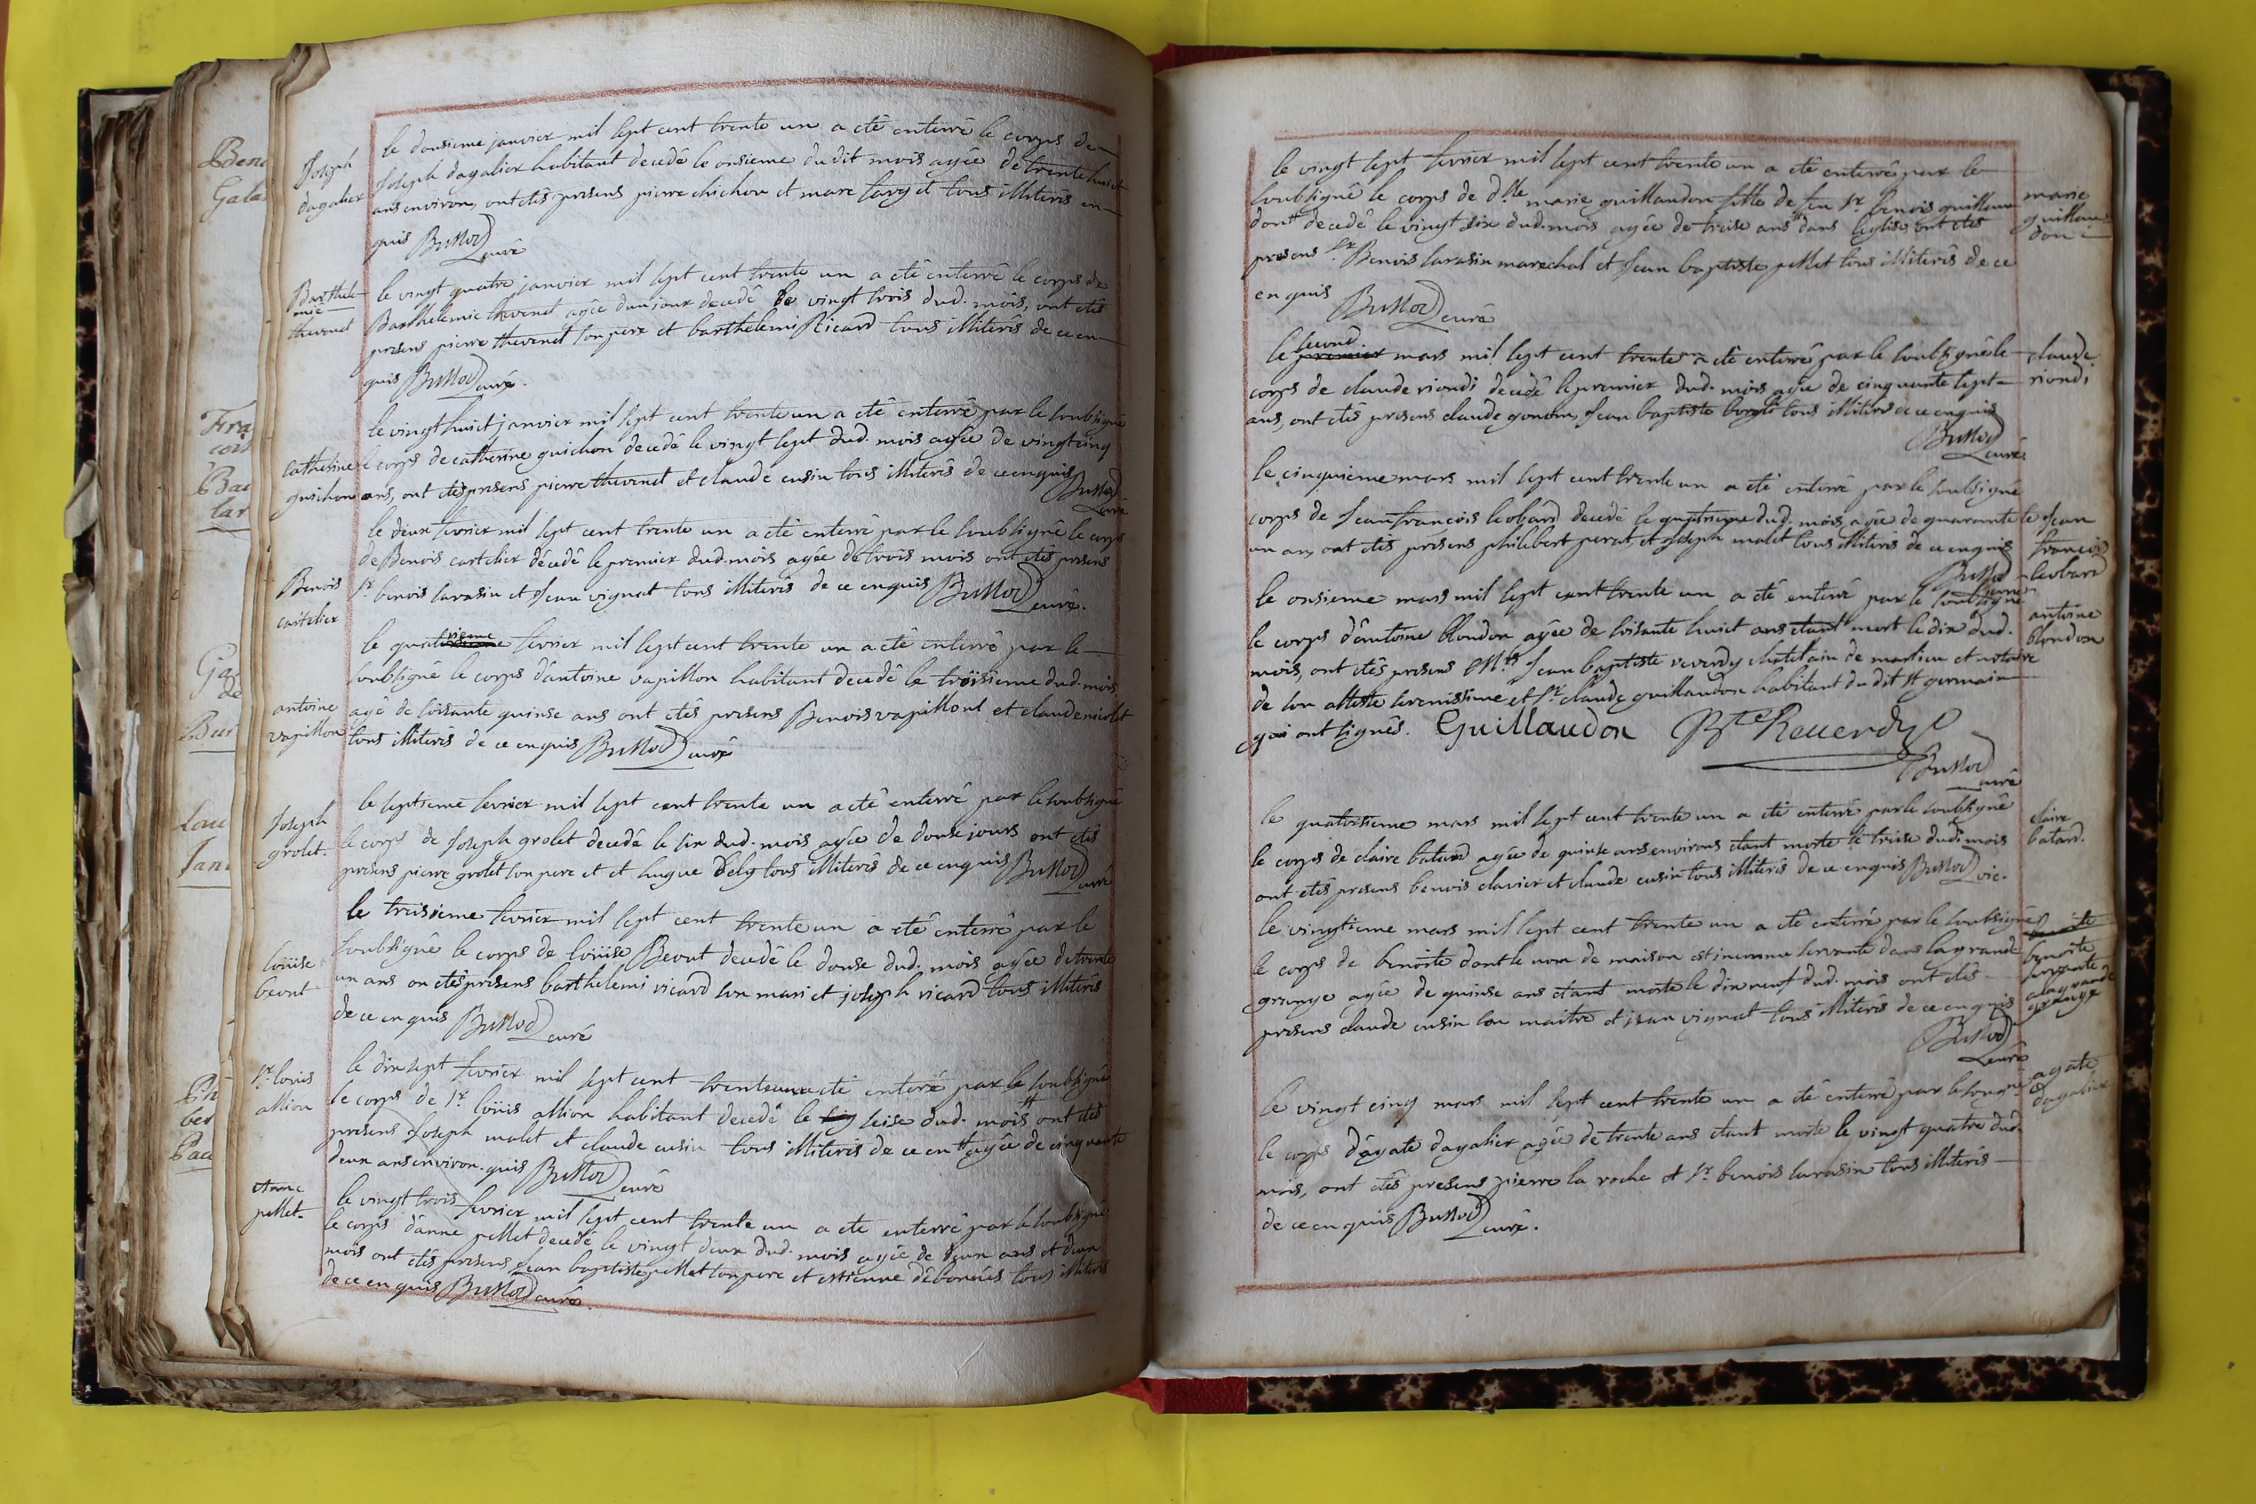 Joseph
dagalier
le dousieme janvier mil sept cent trente un a eté enterré le corps de
Joseph dagalier habitant decedé le onsieme dudit mois agée de trente huit
ans environ, ont etés presens pierre chichon et marc farget tous illiterés en
quis Bussod curé
Barthele
mie
thevenet
le vingt quatre janvier mil sept cent trente un a eté enterré le corps de
Barthelemie thevenet agée dun jour decedé le vingt trois dud. mois, ont etés
presens pierre thevenet son pere et barthelemi Ricard tous illiterés de ce en
quis Bussod curé.
catherine
guichon
le vingt huit janvier mil sept cent trente un a eté enterré par le soubsigné
le corps de catherine guichon decedé le vingt sept dud. mois agée de vingt cinq
ans, ont etés presens pierre thevenet et claude cusin tous illiterés de ce enquis Bussod
curé
Benois
cartelier
le deux fevrier mil sept cent trente un a eté enterré par le soubsigné le corps
de Benois cartelier décedé le premier dud. mois agée de trois mois ont etés presens
Sr. benois sarasin et Jean vignat tous illiterés de ce enquis Bussod curé.
antoine
vapillon
le quatrieme fevrier mil sept cent trente un a eté enterré par le
soubsigné le corps d'antoine vapillon habitant decedé le troisieme dud. mois
agé de soisante quinse ans ont etes presens Benois vapillont et claude nicolet
tous illiterés de ce enquis Bussod curé
Joseph
grolet.
le septieme fevrier mil sept cent trente un a eté enterré par le soubsigné
le corps de Joseph grolet decedé le six dud. mois agée de douse jours ont etés
presens pierre grolet son pere et et hugue Dely tous illiterés de ce enquis Bussod
curé
loüise
beout
le treisieme fevrier mil sept cent trente un a eté enterré par le
soubsigné le corps de loüise Beout decedé le douse dud. mois agée de trente
un ans on etés presens barthelemi ricard son mari et joseph ricard tous illiterés
de ce en quis Bussod curé
Sr. louis
allion
le dixsept fevrier mil sept cent trente un a eté enterré par le soubsigné
le corps de Sr. loüis allion habitant decedé le seise dud. mois ont etés
presens Joseph malet et claude cusin tous illiterés de ce en agée de cinquante
deux ans environ. quis Bussod curé
Anne
pellet.
le vingt trois fevrier mil sept cent trente un a eté enterré par le soubsigné
le corps d'anne pellet decedé le vingt deux dud. mois agée de deux ans et deux
mois ont etés presens Jean baptiste pellet son pere et estienne débonnés tous illiterés
de ce en quis Bussod curé.
le vingt sept fevrier mil sept cent trente un a eté enterré par le
soubsigné le corps de dlle marie guillaudon fille de feu Sr. benois guillau
don decedé le vingt six dud. mois agée de treise ans dans leglise ont etés
presens Sr. Benois sarasin marechal et Jean baptiste pellet tous illiterés de ce
en quis Bussod curé
marie
guillau
don
le second premier mars mil sept cent trente un a eté enterré par le soubsigné le
corps de claude riondi decedé le premier dud. mois agée de cinquante sept
ans, ont etés presens claude gonon, Jean baptiste tous illiterés de ce enquis
Bussod
curé
claude
riondi
le cinquieme mars mil sept cent trente un a eté enterré par le soubsigné
corps de Jean francois leobard decedé le quatrieme dud. mois, agée de quarante le
un an, ont etés presens philibert perat, et Joseph malet tous illiterés de ce enquis
Bussod
curé
Jean
francois
leobard
le onsieme mars mil sept cent trente un a eté enterré par le soubsigné
le corps d'antoine blondon agée de soisante huict ans etant mort le dix dud.
mois, ont etés presens Jean baptiste reverdy chatelain de marlieu et notaire
de son altesse serenissime et Sr. claude guillaudon habitant du dit St. germain
qui ont signés. Guillaudon Bte Reverdy
Bussod
curé
antoine
blondon
le quatorsieme mars mil sept cent trente un a eté enterré par le soubsigné
le corps de claire batard agée de quinse ans environs etant morte le treise dud. mois
ont etés presens benois clavier et claude cusin tous illiterés de ce enquis Bussod
claire
batard.
le vingtieme mars mil sept cent trente un a eté enterré par le soubsigné
le corps de benoite dont le nom de maison est inconnu servante dans la grande
grange agée de quinse ans etant morte le dix neuf dud. mois ont etés
presens claude cusin son maitre et jean vignat tous illiterés de ce en quis
Bussod
curé
benoite
servante
a la grande
grange
le vingt cinq mars mil sept cent trente un a eté enterré par le
le corps d'agate dagalier agée de trente ans etant morte le vingt quatre dud.
mois, ont etés presens pierre la roche et Sr. benois sarasin tous illiterés
de ce en quis Bussod curé.
agate
dagalier